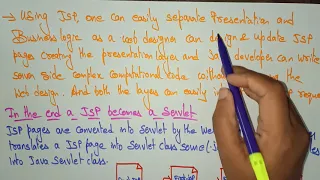 → Using JSP, one can easily separate Presentation and
Business logic as a web designer can design & update JSP
pages creating the presentation layer and Java developer can write
server side complex computational code without the
web design. And both the layers can easily
In the end a JSP becomes a Servlet
JSP pages are converted into Servlet by the We
translates a JSP page into Servlet class source(.j
into Java Servlet class.